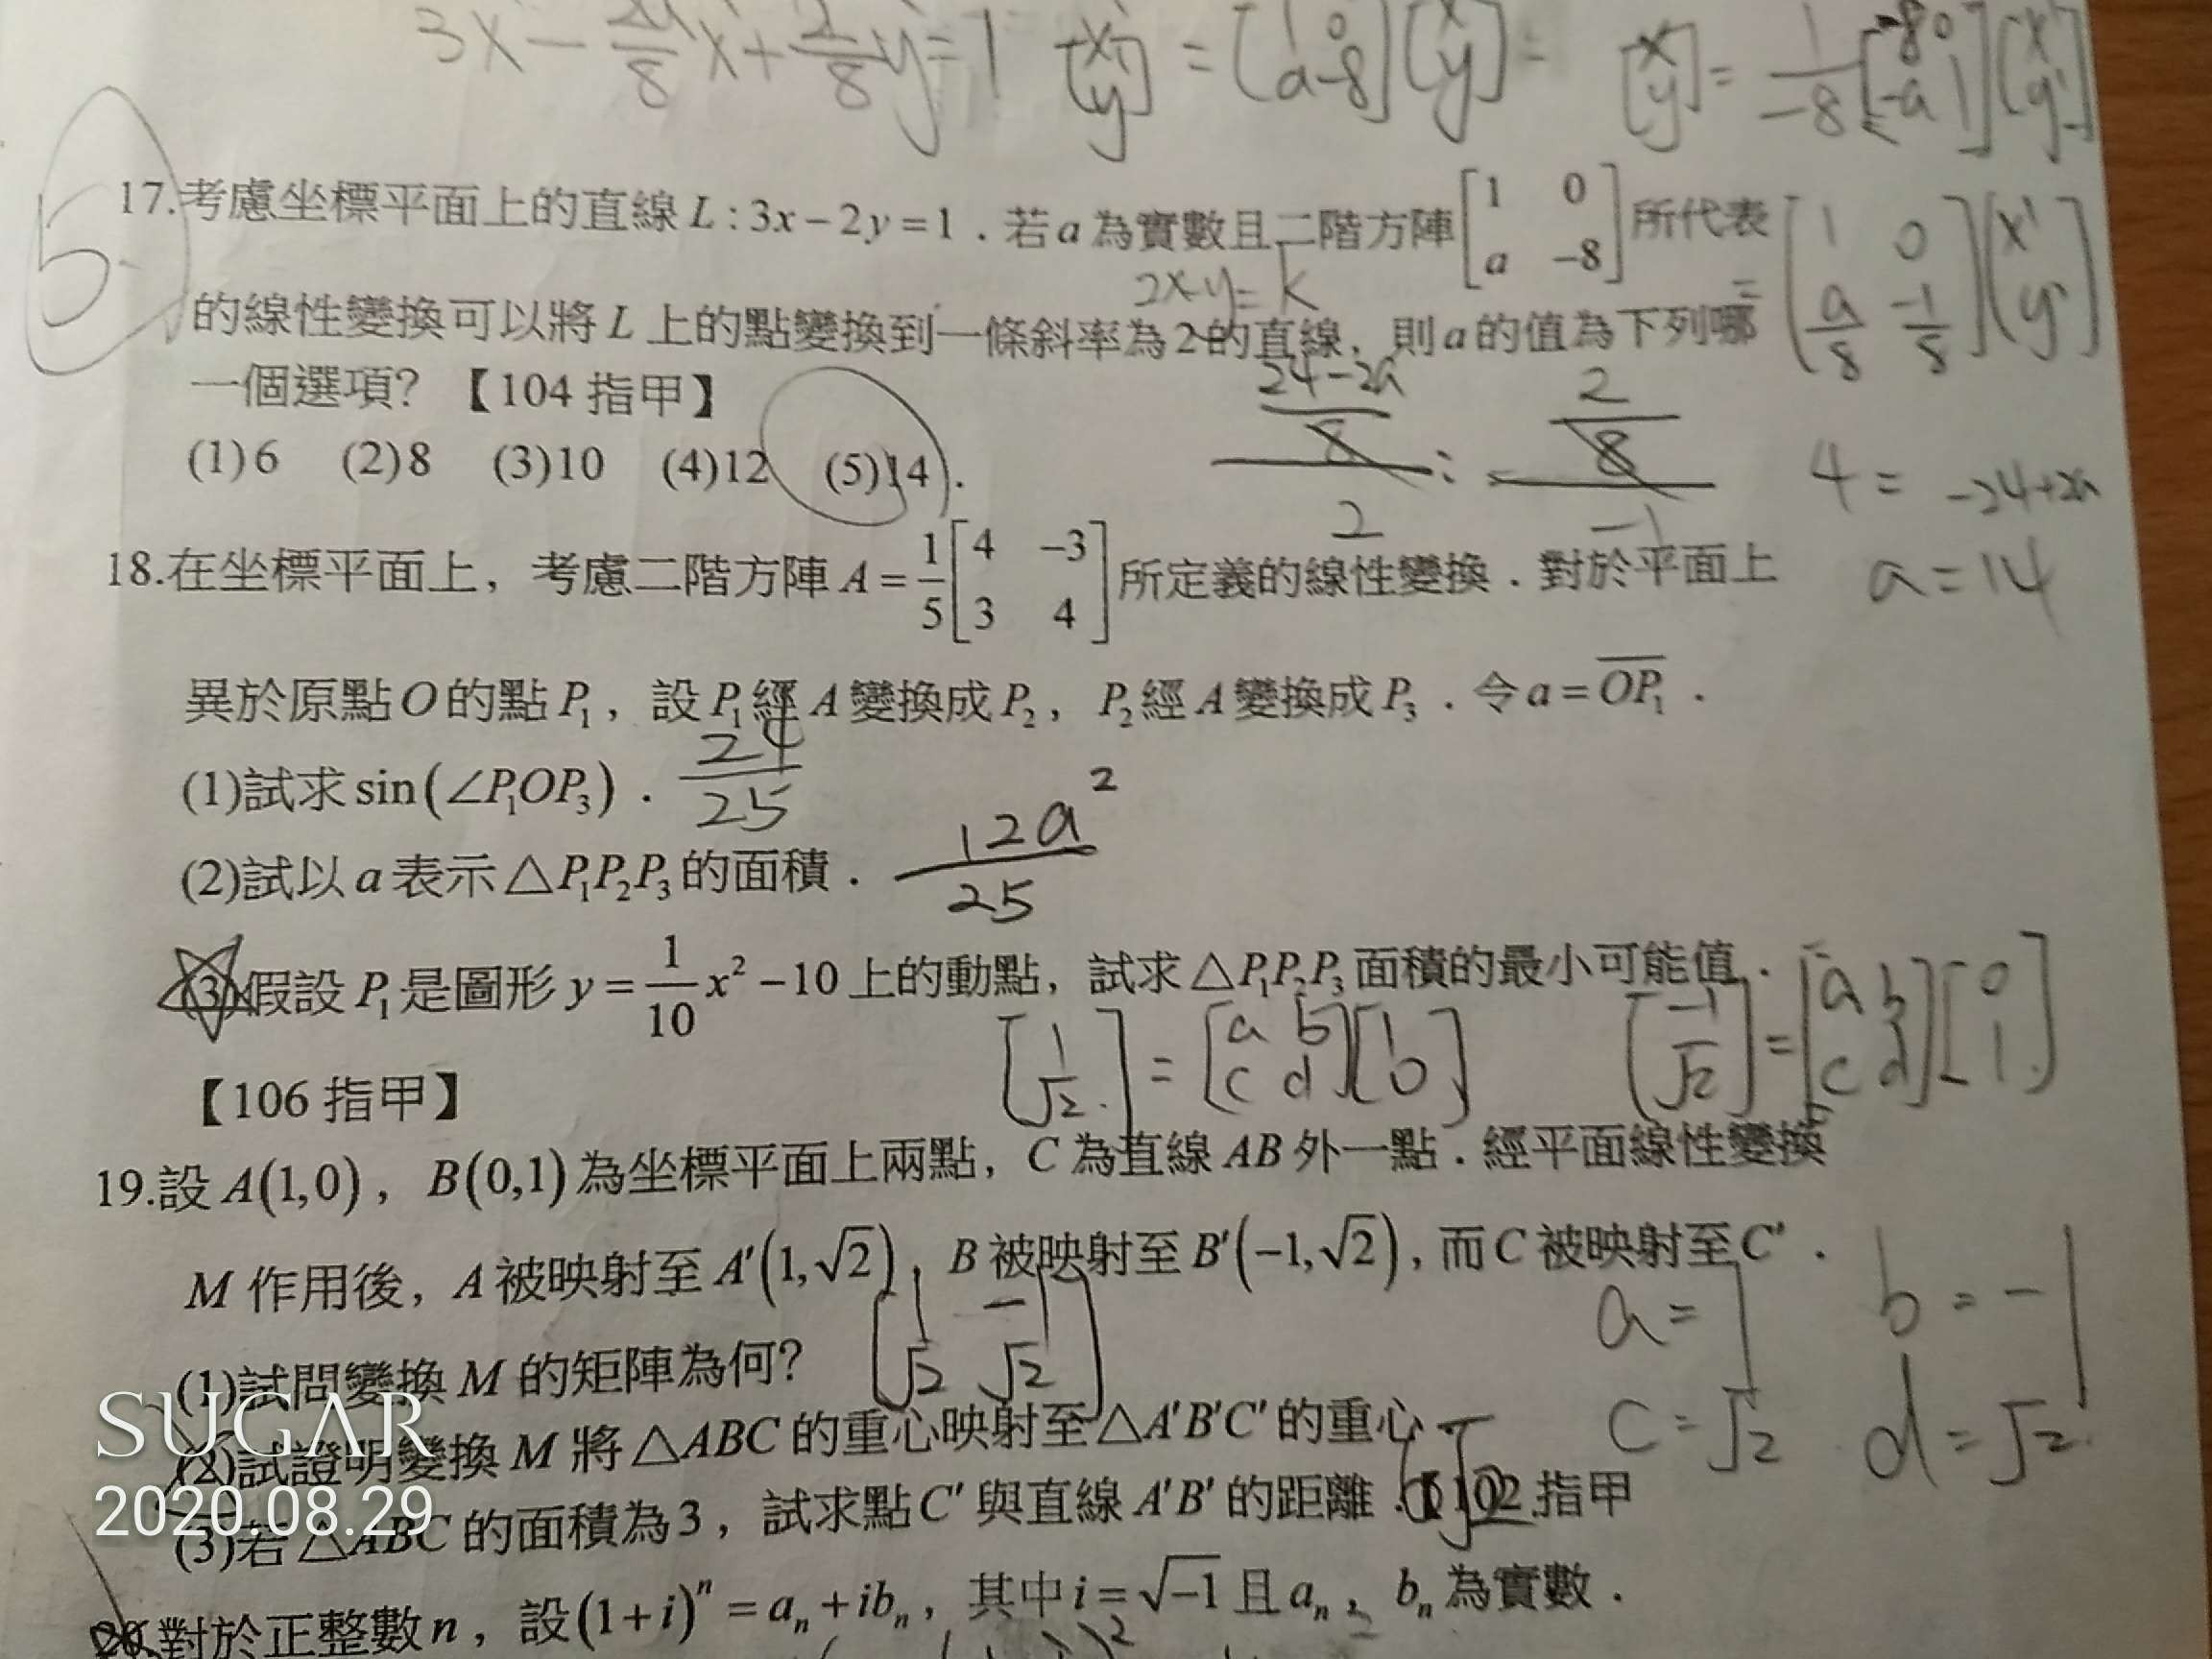 3x - 2a/8 x + 2/8 y = 1 [x' y'] = [1 0 a -8] [x y] = [x y] = 1/-8 [-8 0 -a 1] [x' y']
17.考慮坐標平面上的直線 L : 3x − 2y = 1 . 若 a 為實數且二階方陣 [1 0 a −8] 所代表
= [1 0 a/8 -1/8] [x' y']
2x-y=k
的線性變換可以將 L 上的點變換到一條斜率為 2 的直線, 則 a 的值為下列哪
一個選項? 【104 指甲】
(24-2a)/8 / 2 : 2/8 / -1
(1) 6 (2) 8 (3) 10 (4) 12 (5) 14 .
4 = -24+2a
a = 14
18.在坐標平面上, 考慮二階方陣 A = 1/5 [4 −3 3 4] 所定義的線性變換 . 對於平面上
異於原點 O 的點 P₁, 設 P₁ 經 A 變換成 P₂, P₂ 經 A 變換成 P₃ . 令 a = OP₁ .
(1)試求 sin(∠P₁OP₃) . 24/25
(2)試以 a 表示 △P₁P₂P₃ 的面積 . 12a²/25
(3)假設 P₁ 是圖形 y = 1/10 x² − 10 上的動點, 試求 △P₁P₂P₃ 面積的最小可能值 .
[1 √2] = [a b c d] [1 0] [-1 √2] = [a b c d] [0 1]
【106 指甲】
19.設 A(1,0), B(0,1) 為坐標平面上兩點, C 為直線 AB 外一點 . 經平面線性變換
M 作用後, A 被映射至 A′(1,√2), B 被映射至 B′(−1,√2), 而 C 被映射至 C′ .
a = 1 b = -1
(1)試問變換 M 的矩陣為何? [1 -1 √2 √2]
c = √2 d = √2
(2)試證明變換 M 將 △ABC 的重心映射至 △A′B′C′ 的重心
(3)若 △ABC 的面積為 3, 試求點 C′ 與直線 A′B′ 的距離 . 【102 指甲
20.對於正整數 n, 設 (1+i)ⁿ = aₙ + ibₙ, 其中 i = √−1 且 aₙ, bₙ 為實數 .
SUGAR
2020.08.29